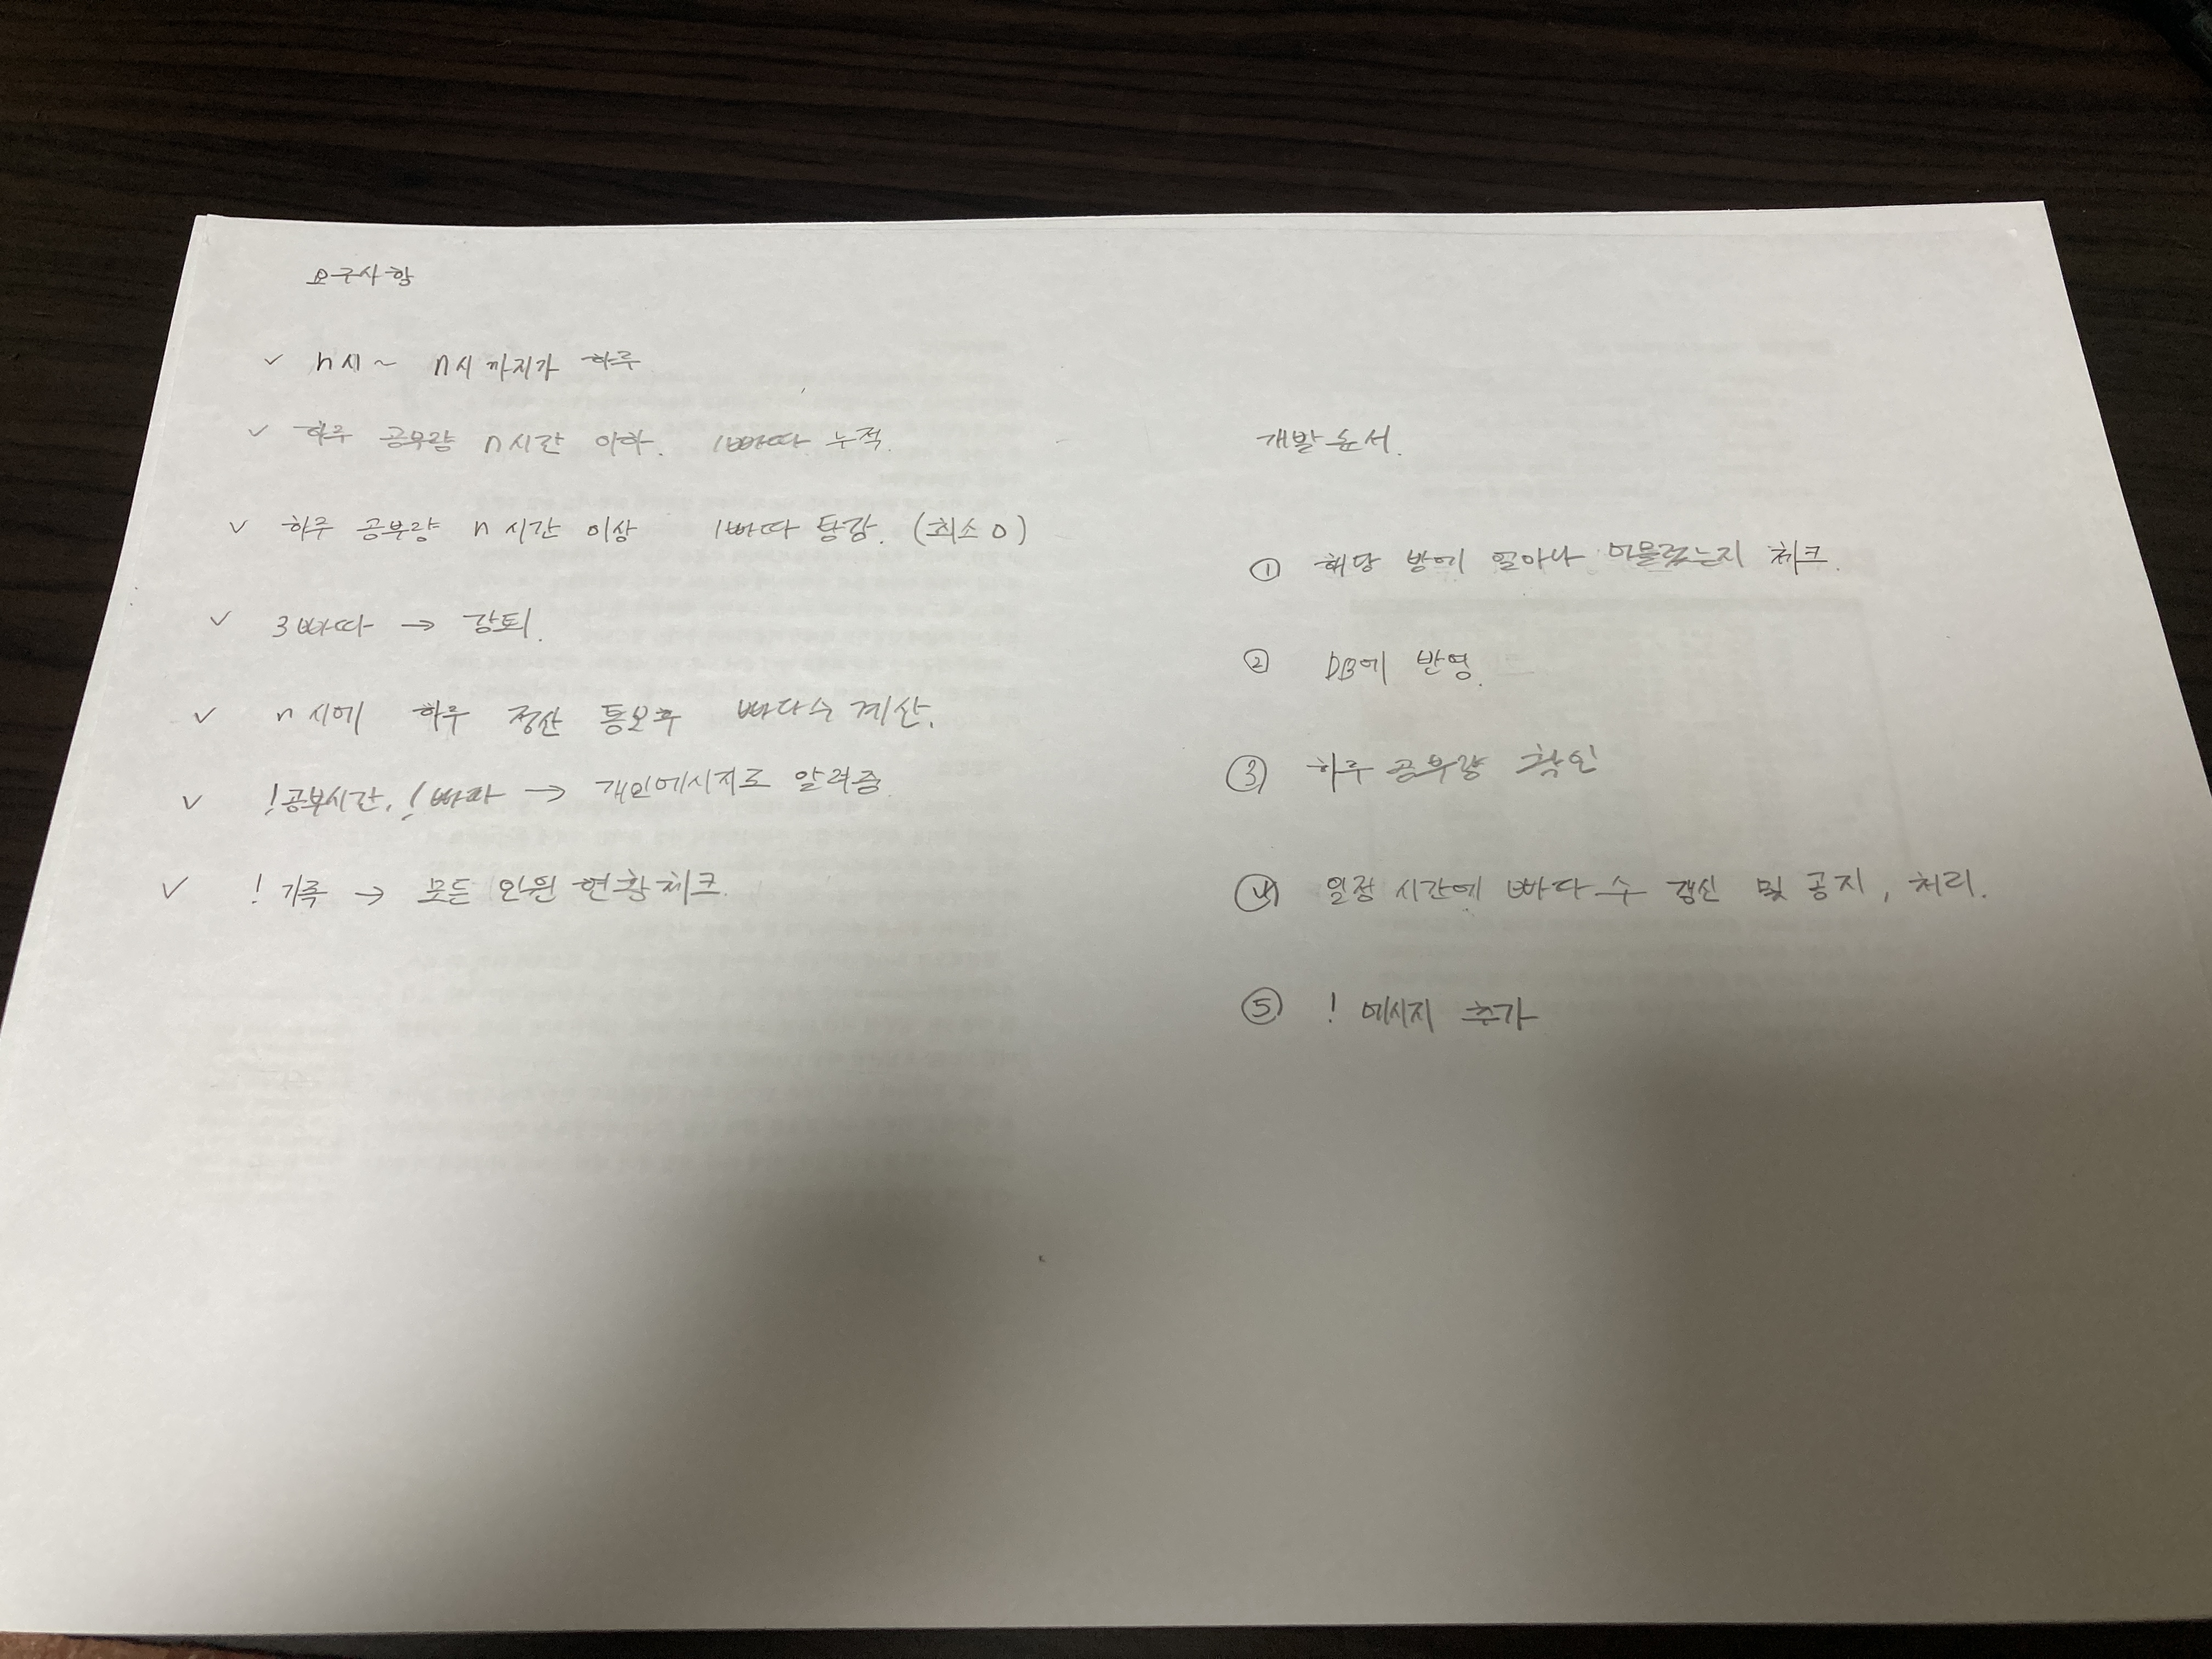 요구사항
✓ n시 ~ n시 까지가 하루
✓ 하루 공부량 n시간 이하. 1빠따 누적.
✓ 하루 공부량 n시간 이상 1빠따 탕감. (최소 0)
✓ 3빠따 → 강퇴.
✓ n시에 하루 정산 통보후 빠다수 계산.
✓ !공부시간, !빠따 → 개인메시지로 알려줌.
✓ ! 기록 → 모든 인원 현황체크.
개발순서.
① 해당 방에 얼마나 머물렀는지 체크.
② DB에 반영.
③ 하루 공부량 확인
④ 일정 시간에 빠다 수 갱신 및 공지, 처리.
⑤ ! 메시지 추가